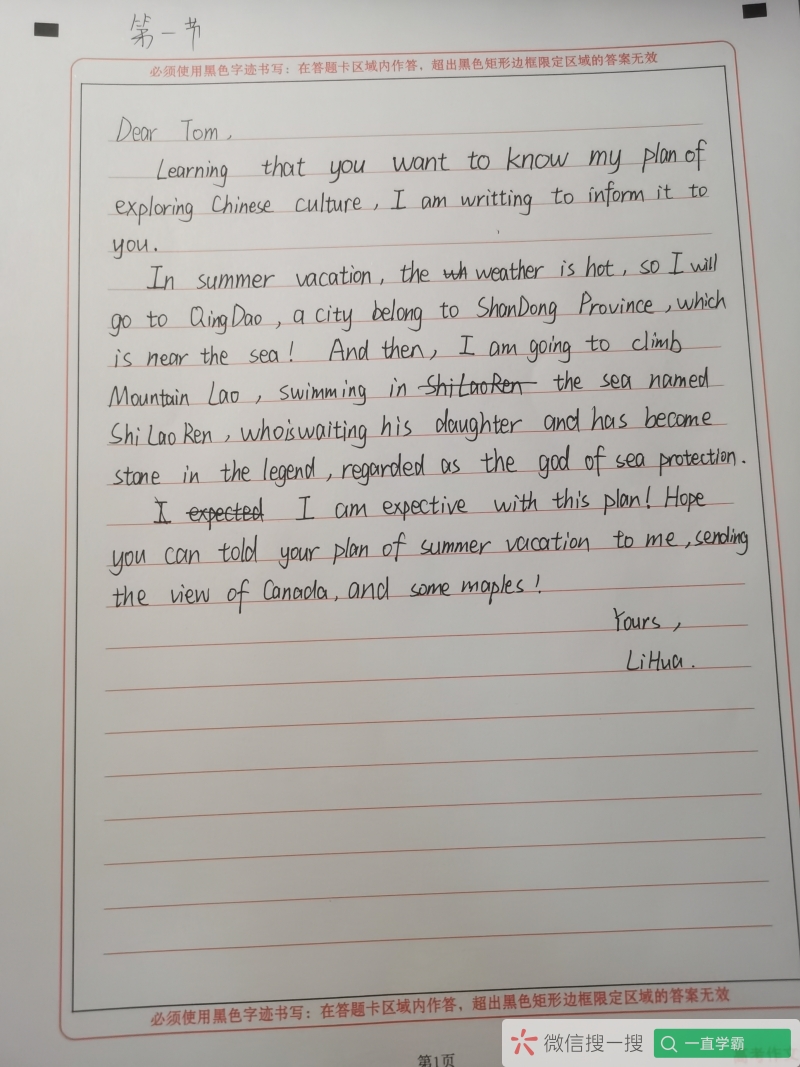 第一节
必须使用黑色字迹书写：在答题卡区域内作答，超出黑色矩形边框限定区域的答案无效
Dear Tom,
Learning that you want to know my plan of
exploring Chinese culture, I am writting to inform it to
you.
In summer vacation, the wh weather is hot, so I will
go to QingDao, a city belong to ShanDong Province, which
is near the sea! And then, I am going to climb
Mountain Lao, swimming in ShiLaoRen the sea named
Shi Lao Ren, who is waiting his daughter and has become
stone in the legend, regarded as the god of sea protection.
I expected I am expective with this plan! Hope
you can told your plan of summer vacation to me, sending
the view of Canada, and some maples!
Yours,
LiHua.
必须使用黑色字迹书写：在答题卡区域内作答，超出黑色矩形边框限定区域的答案无效
第1页
微信搜一搜
一直学霸